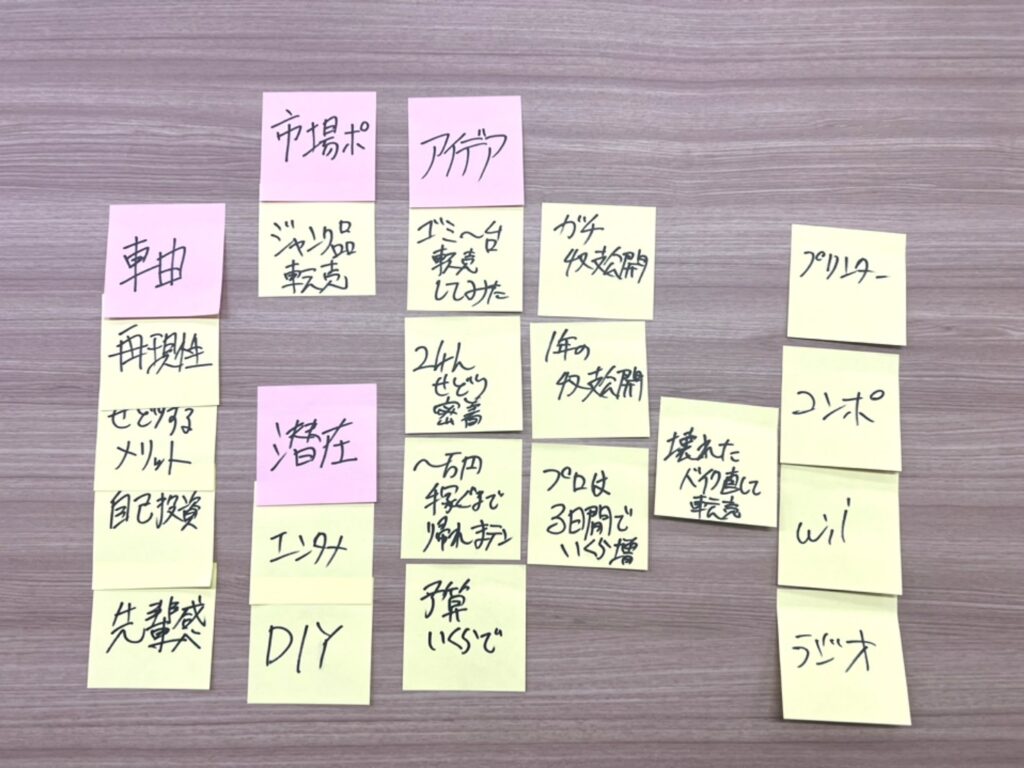 市場ポ
ジャンク品
転売
アイデア
ゴミ〜台
転売
してみた
24h
せどり
密着
〜万円
稼ぐまで
帰れまテン
予算
いくらで
ガチ
収支公開
1年の
収支公開
プロは
3日間で
いくら増
壊れた
バイク直して
転売
再現性
せどりする
メリット
自己投資
先輩感
潜在
エンタメ
DIY
プリンター
コンポ
wii
ラジオ